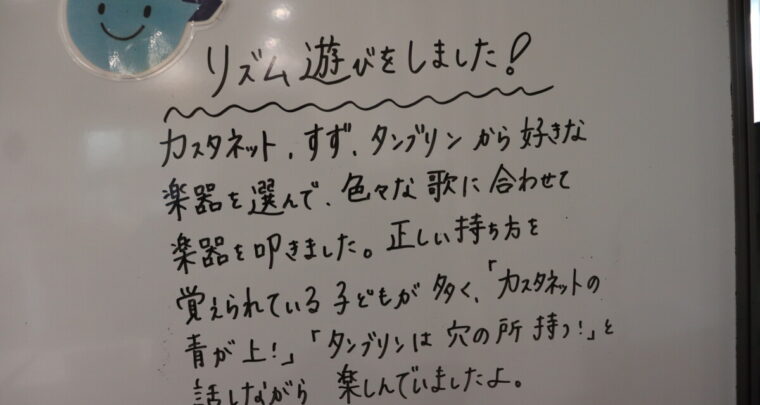 リズム遊びをしました!
カスタネット、すず、タンブリンから好きな
楽器を選んで、色々な歌に合わせて
楽器を叩きました。正しい持ち方を
覚えられている子どもが多く、「カスタネットの
青が上!」「タンブリンは穴の所持つ!」と
話しながら楽しんでいましたよ。